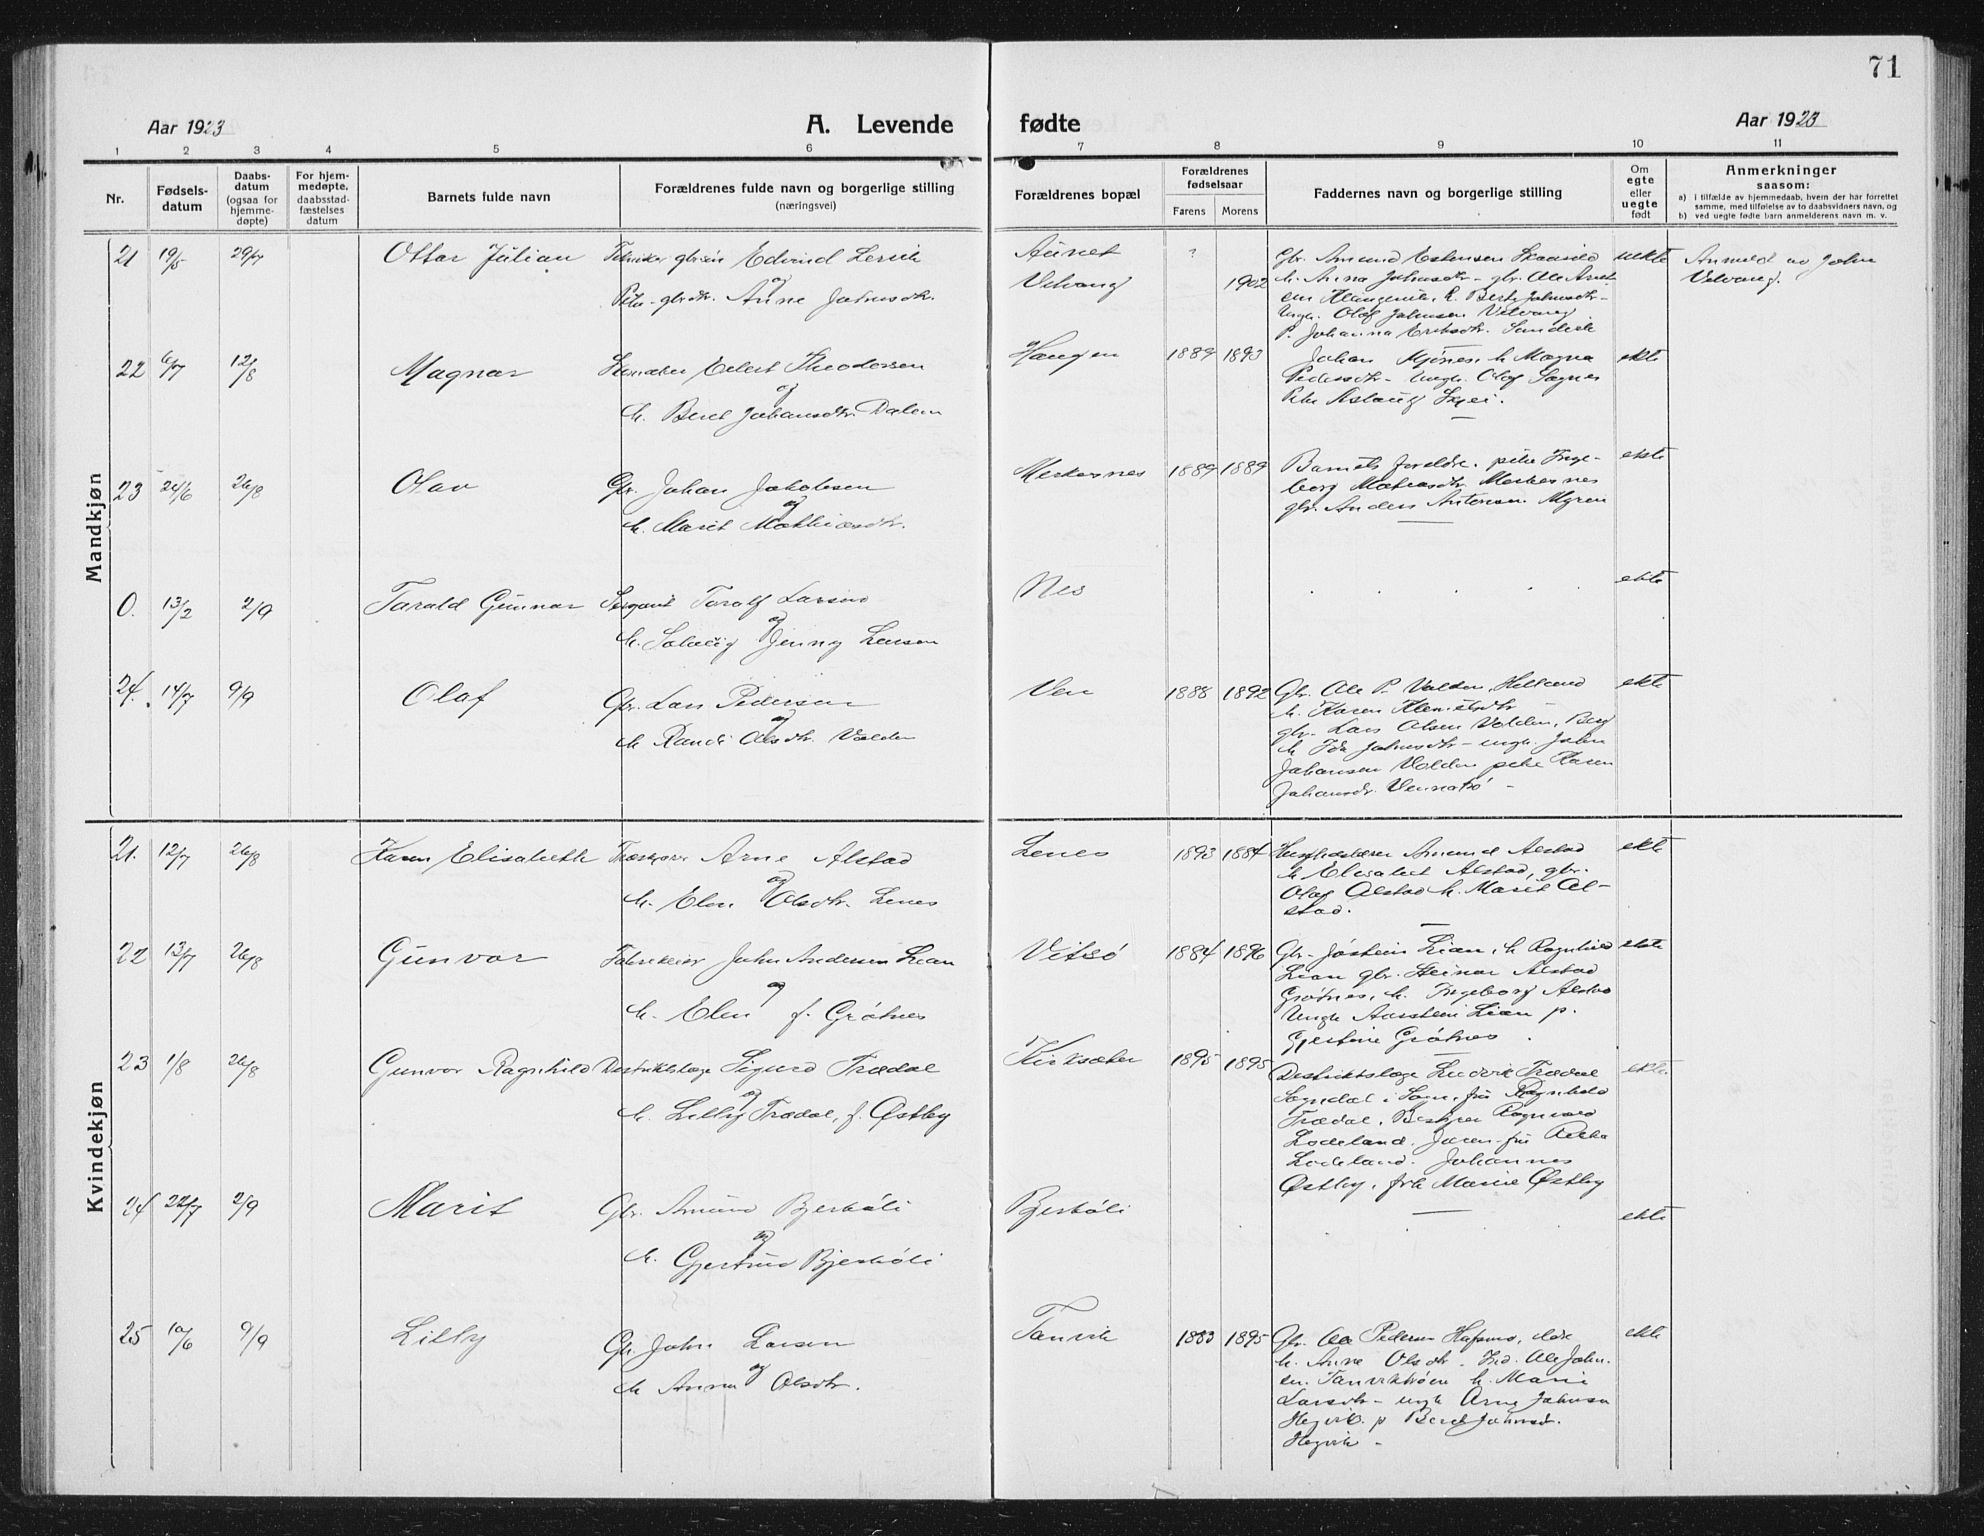 71
Aar 1923
A. Levende fødte
Aar 1923
1 2 3 4 5 6 7 8 9 10 11
Nr.
Fødsels-
datum
Daabs-
datum
(ogsaa for
hjemme-
døpte)
For hjem-
medøpte,
daabsstad-
fæstelses
datum
Barnets fulde navn
Forældrenes fulde navn og borgerlige stilling
(næringsvei)
Forældrenes bopæl
Forældrenes
fødselsaar
Farens
Morens
Faddernes navn og borgerlige stilling
Om
egte
eller
uegte
født
Anmerkninger
saasom:
a) i tilfælde av hjemmedaab, hvem der har forrettet
samme, med tilføielse av to daabsvidners navn, og
b) ved uegte fødte barn anmelderens navn m. v.
Mandkjøn
21 19/5 29/7 Ottar Julian
Edvind Lervik
og
Anne Johnsdtr.
Aunet
Velvang
? 1902
Gbr. Amund Estensen
h. Anna Johnsdtr - gbr. Ole
h. Berit Johnsdtr -
Ungk. Olaf Johnsen Velvang
P. Johanna Eriksdtr. Sandvik
uekte
Anmeldt av John
Velvang.
22 6/7 12/8 Magnar
Eilert Theodorsen
og
h. Beret Johansdtr. Dalen
Haugen
1889 1893
Johan Mjønes, h. Magna
Pedersdtr - Ungk. Olaf Sognes
Pike Aslaug Skei.
ekte
23 24/6 26/8 Olav
Gbr. Johan Jakobsen
og
h. Marit Mathiasdtr.
Merkesnes
1889 1889
Barnets foreldre, pike Inge-
borg Mathiasdtr Merkesnes
gbr. Anders Antonsen Myren
ekte
0. 13/2 2/9 Tarald Gunnar
Sergant Toralf Larsen
og
h. Solveig Jenny Larsen
Nes
ekte
24. 14/7 9/9 Olaf
Gbr. Lars Pedersen
og
h. Randi Olsdtr. Valden
Ven
1888 1892
Gbr. Ole P. Valden,
h. Karen
gbr. Lars Olsen Volden, Berg
h. Ida Johnsdtr - ungk. John
Johansen Volden pike Karen
Johansdtr.
ekte
Kvindekjøn
21. 12/7 26/8 Karen Elisabeth
Arne Alstad
og
h. Elen Olsdtr. Lenes
Lenes
1893 1884
Amund Alstad
h. Elisabet Alstad, gbr.
Olaf Alstad h. Marit Al-
stad.
ekte
22 13/7 26/8 Gunvor
John Andersen Lian
og
h. Elen f. Grøtnes
Vitsø
1884 1896
Gbr. Jøstein Lian, h. Ragnhild
Lian gbr. Steinar Alstad
Grøtnes, h. Ingeborg Alstad
Ungk Aarstein Lian p.
Gjertine Grøtnes
ekte
23 1/8 26/8 Gunvor Ragnhild
Distriktslæge Sigurd Trædal
og
h. Lilly Trædal, f. Østby
Kirksæter
1895 1895
Distriktslæge Ludvik Trædal
Sogndal i Sogn, fru Ragnhild
Trædal, Bestyrer Ragnvald
Lodeland. Jæren. fru
Lodeland. Johannes
Østby, frk Marie Østby
ekte
24 22/7 2/9 Marit
Gbr. Amund Bjerkøli
og
h. Gjertrud Bjerkøli
Bjerkøli
ekte
25 10/6 9/9 Lilly
Gbr. John Larsen
og
h. Anna Olsdtr.
Tanvik
1883 1895
Gbr. Ole Pedersen
h. Anne Olsdtr. Ole John-
sen. h. Marie
Larsdtr - ungk Arne Johnsen
Hegvik. p Beret Johnsdtr.
Hegvik -
ekte